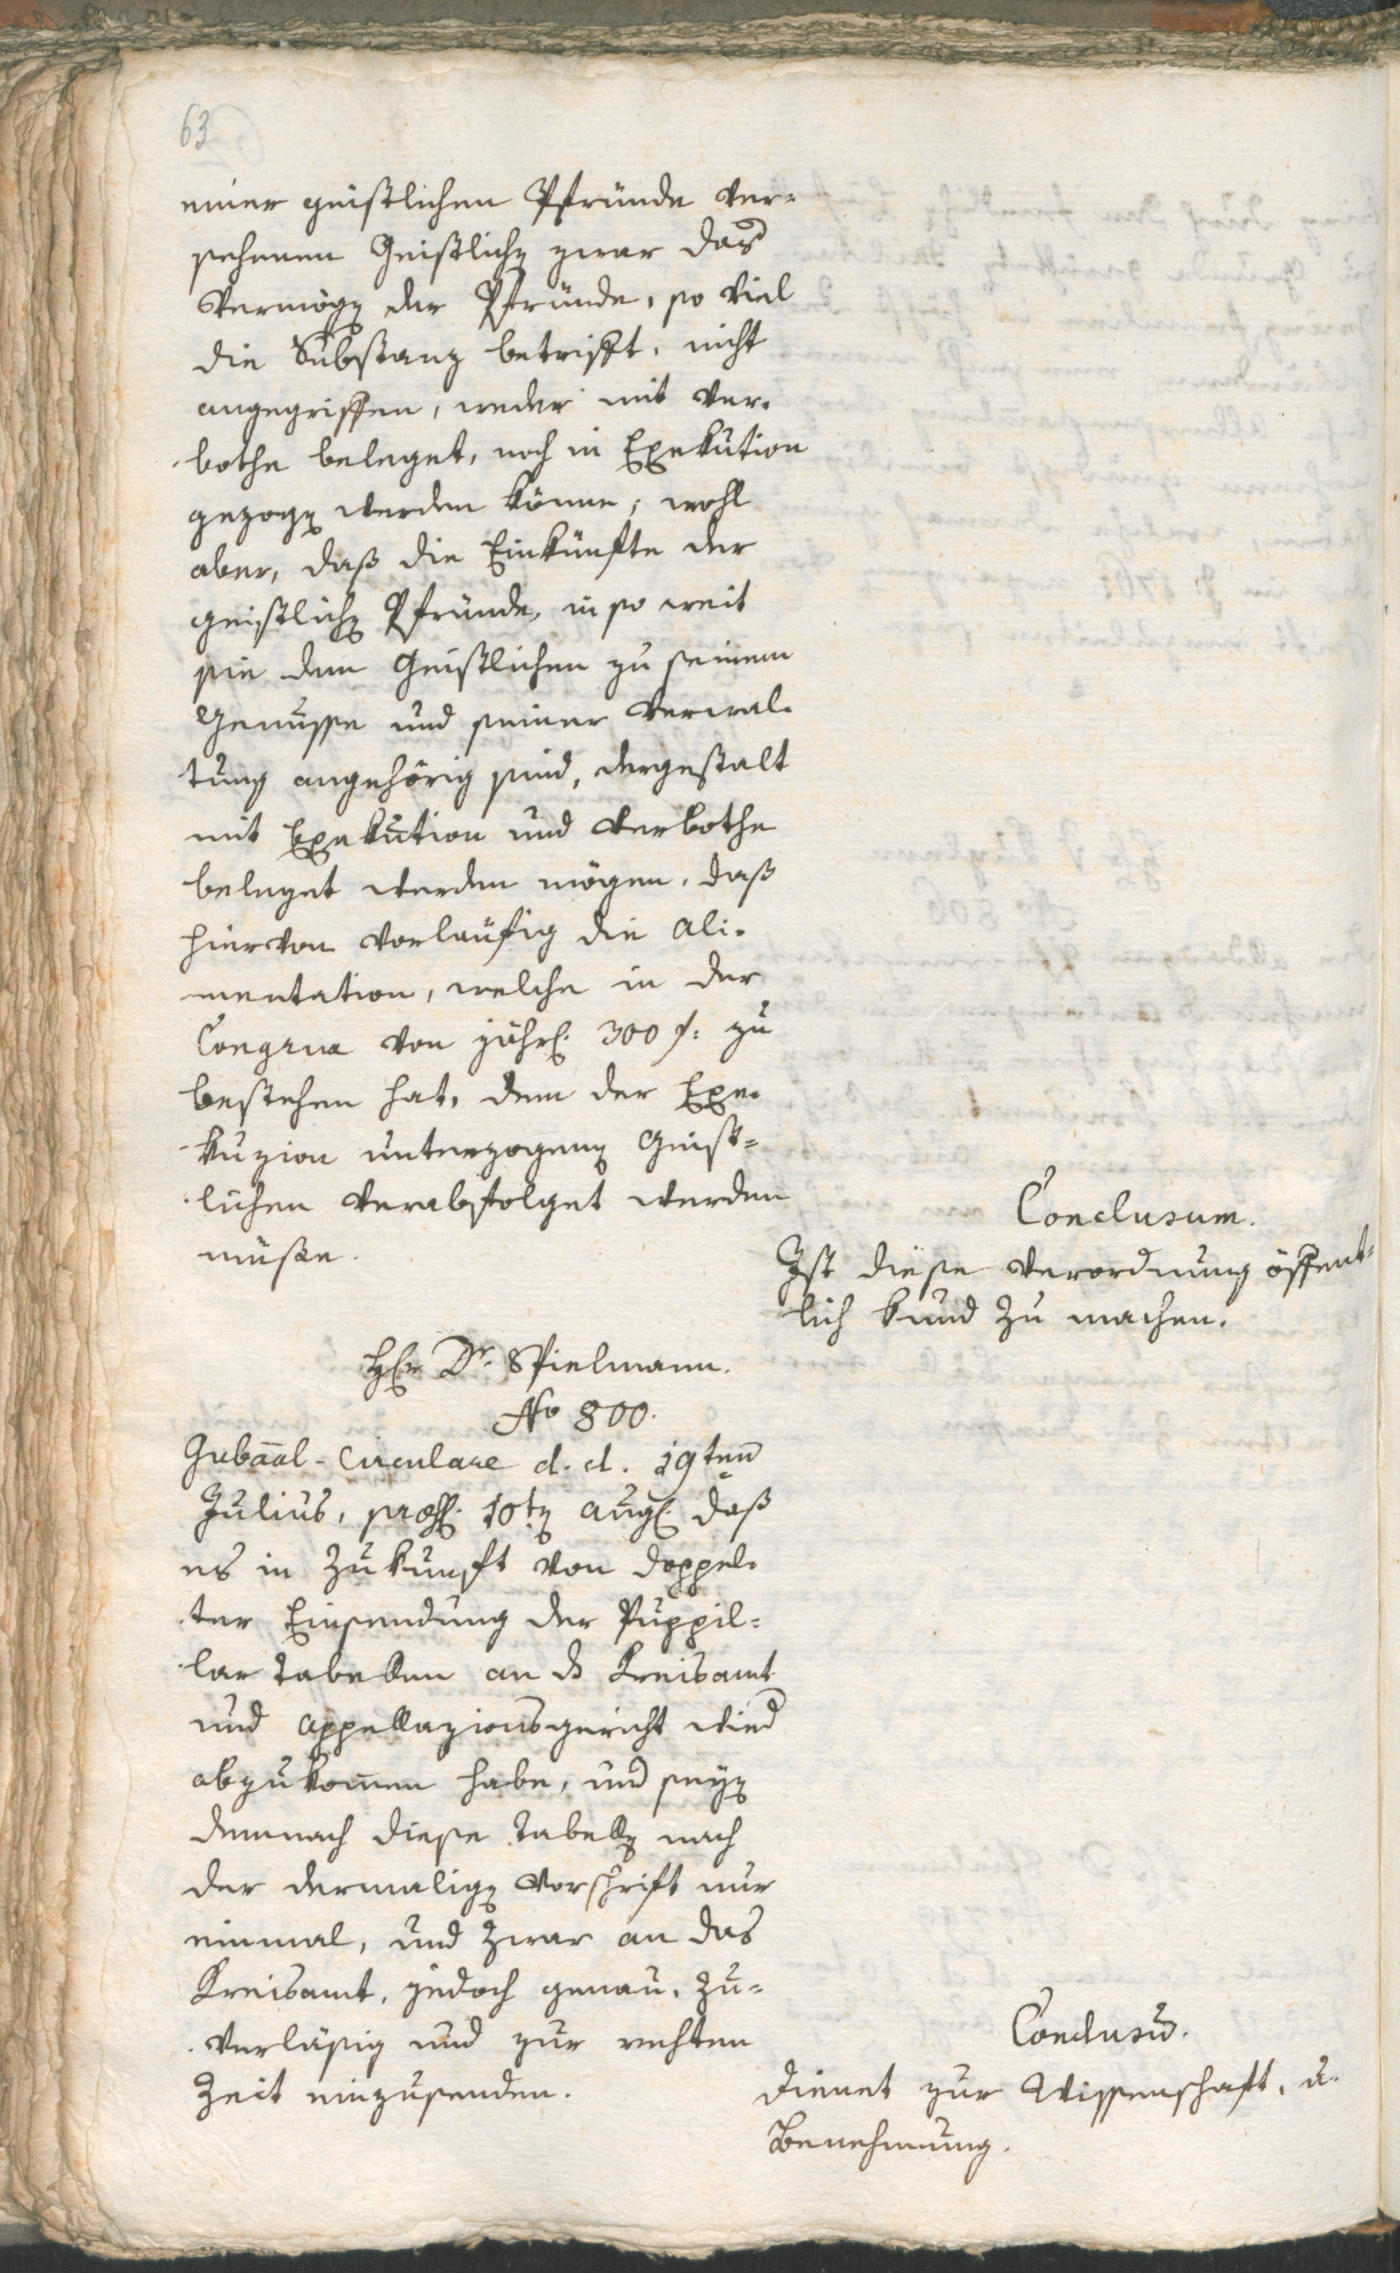 63
einer geistlichen Pfründe ver=
sehenen Geistlichen zwar das
Vermögen der Pfründe, so viel
die Substanz betrifft, nicht
angegriffen, weder mit Ver=
bothe beleget, noch in Exekution
gezogen werden könne; wohl
aber, daß die Einkünfte der
geistlichen Pfründe, in so weit
sie dem Geistlichen zu seinem
Genusse und seiner Verwal=
tung angehörig sind, dergestalt
mit Exekution und Verbothe
beleget werden mögen, daß
hiervon vorläufig die Ali=
mentation, welche in der
Congrua von jährl. 300 f: zu
bestehen hat, dem der Exe=
kuzion unterzogenen Geist=
lichen verabfolget werden
müße.
Conclusum.
Ist diese Verordnung öffent=
lich kund zu machen.
H͞r Dr. Spielmann.
No 800.
Guba͞al-Circulare d. d. 19ten
Julius, præs. 10ten Aug. daß
es in Zukunft von doppel=
ter Einsendung der Puppil=
lar Tabellen an ds Kreisamt
und Appellazionsgericht wied
abzukom̄en habe, und seyen
demnach diese Tabellen nach
der dermaligen Vorschrift nur
einmal, und zwar an das
Kreisamt, jedoch genau, zu=
verläßig und zur rechten
Zeit einzusenden.
Conclusū.
Dienet zur Wissenschaft, u.
Benehmung.